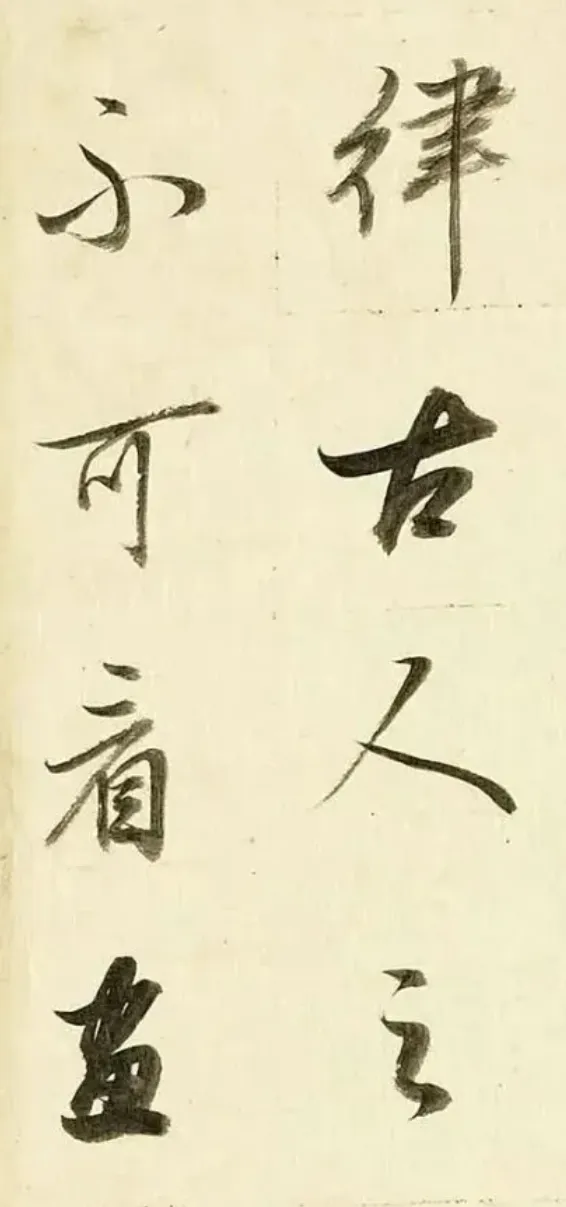 律古人之
不可看畫